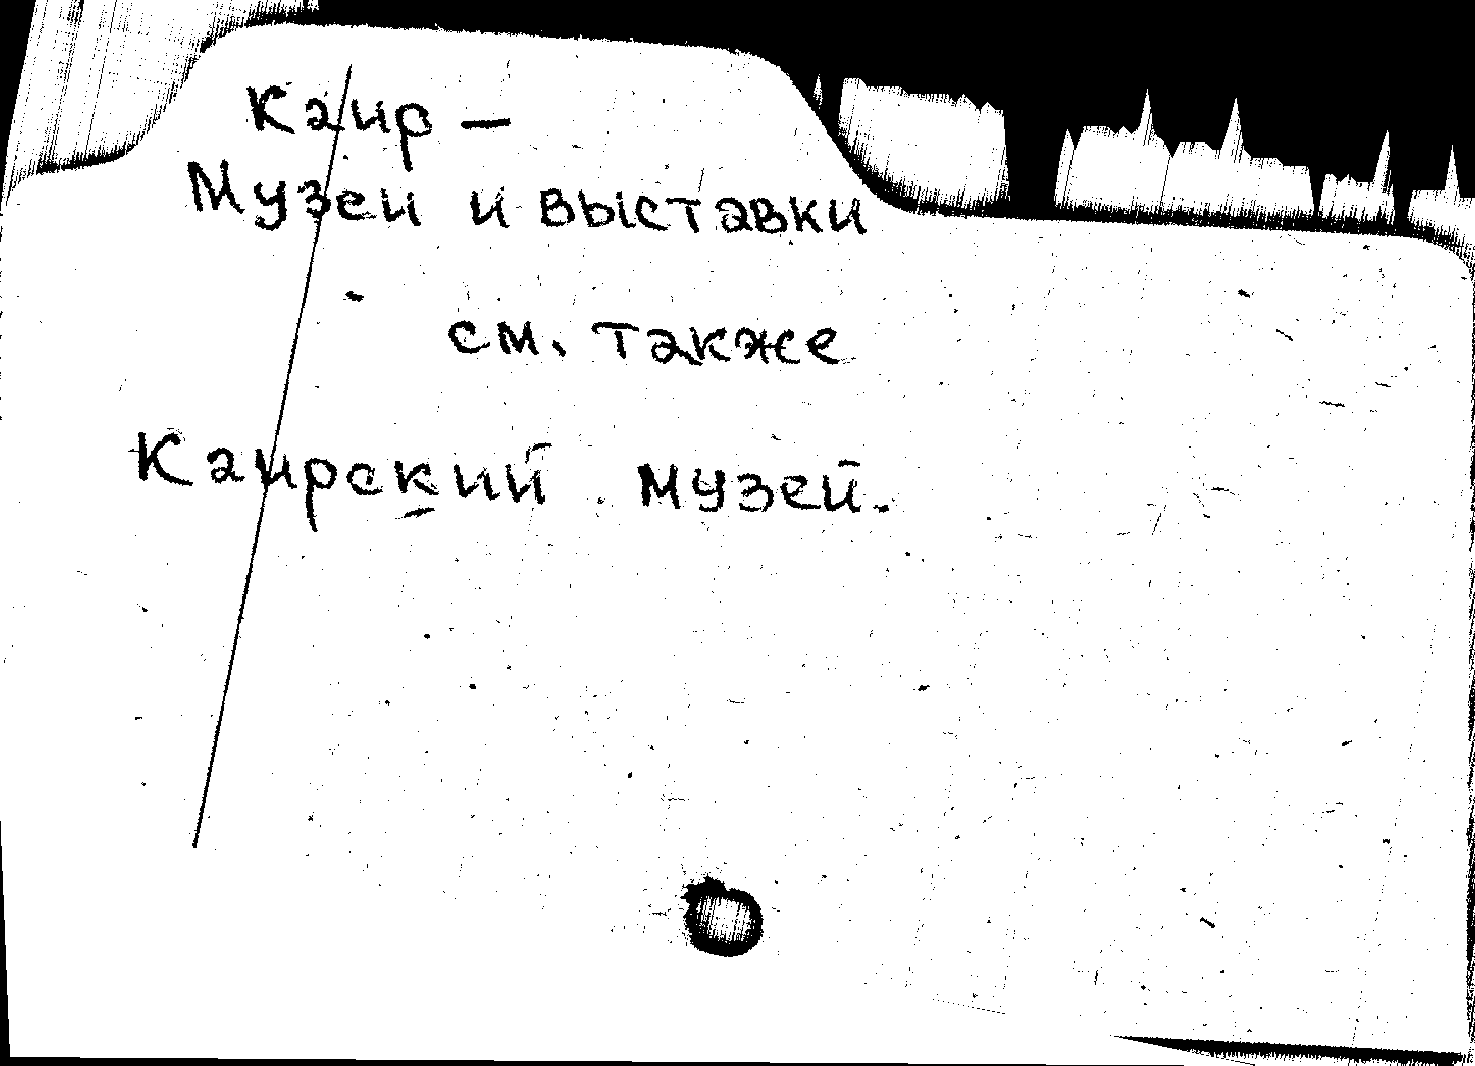 Каир —
Музеи и выставки
см. также
Каирский музей.